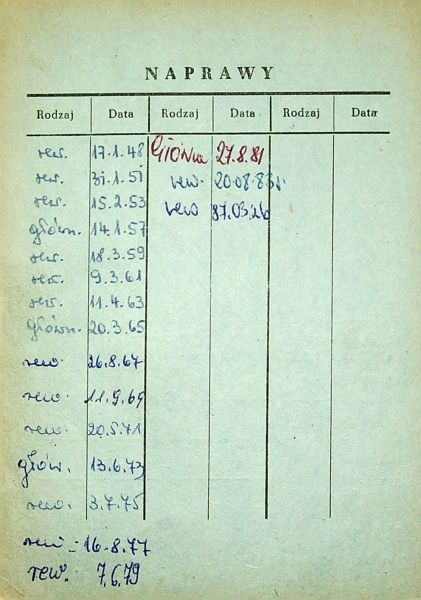 NAPRAWY
Rodzaj Data Rodzaj Data Rodzaj Data
rew. 17.1.48 Główna 27.8.81
rew. 31.1.51 rew. 20.08.83r
rew. 15.2.53 rew 87.03.26
główn. 14.1.57
rew. 18.3.59
rew. 9.3.61
rew. 11.4.63
główn. 20.3.65
rew. 26.8.67
rew. 11.9.69
rew. 20.5.71
głów. 13.6.73
rew. 3.7.75
rew. 16.8.77
rew. 7.6.79